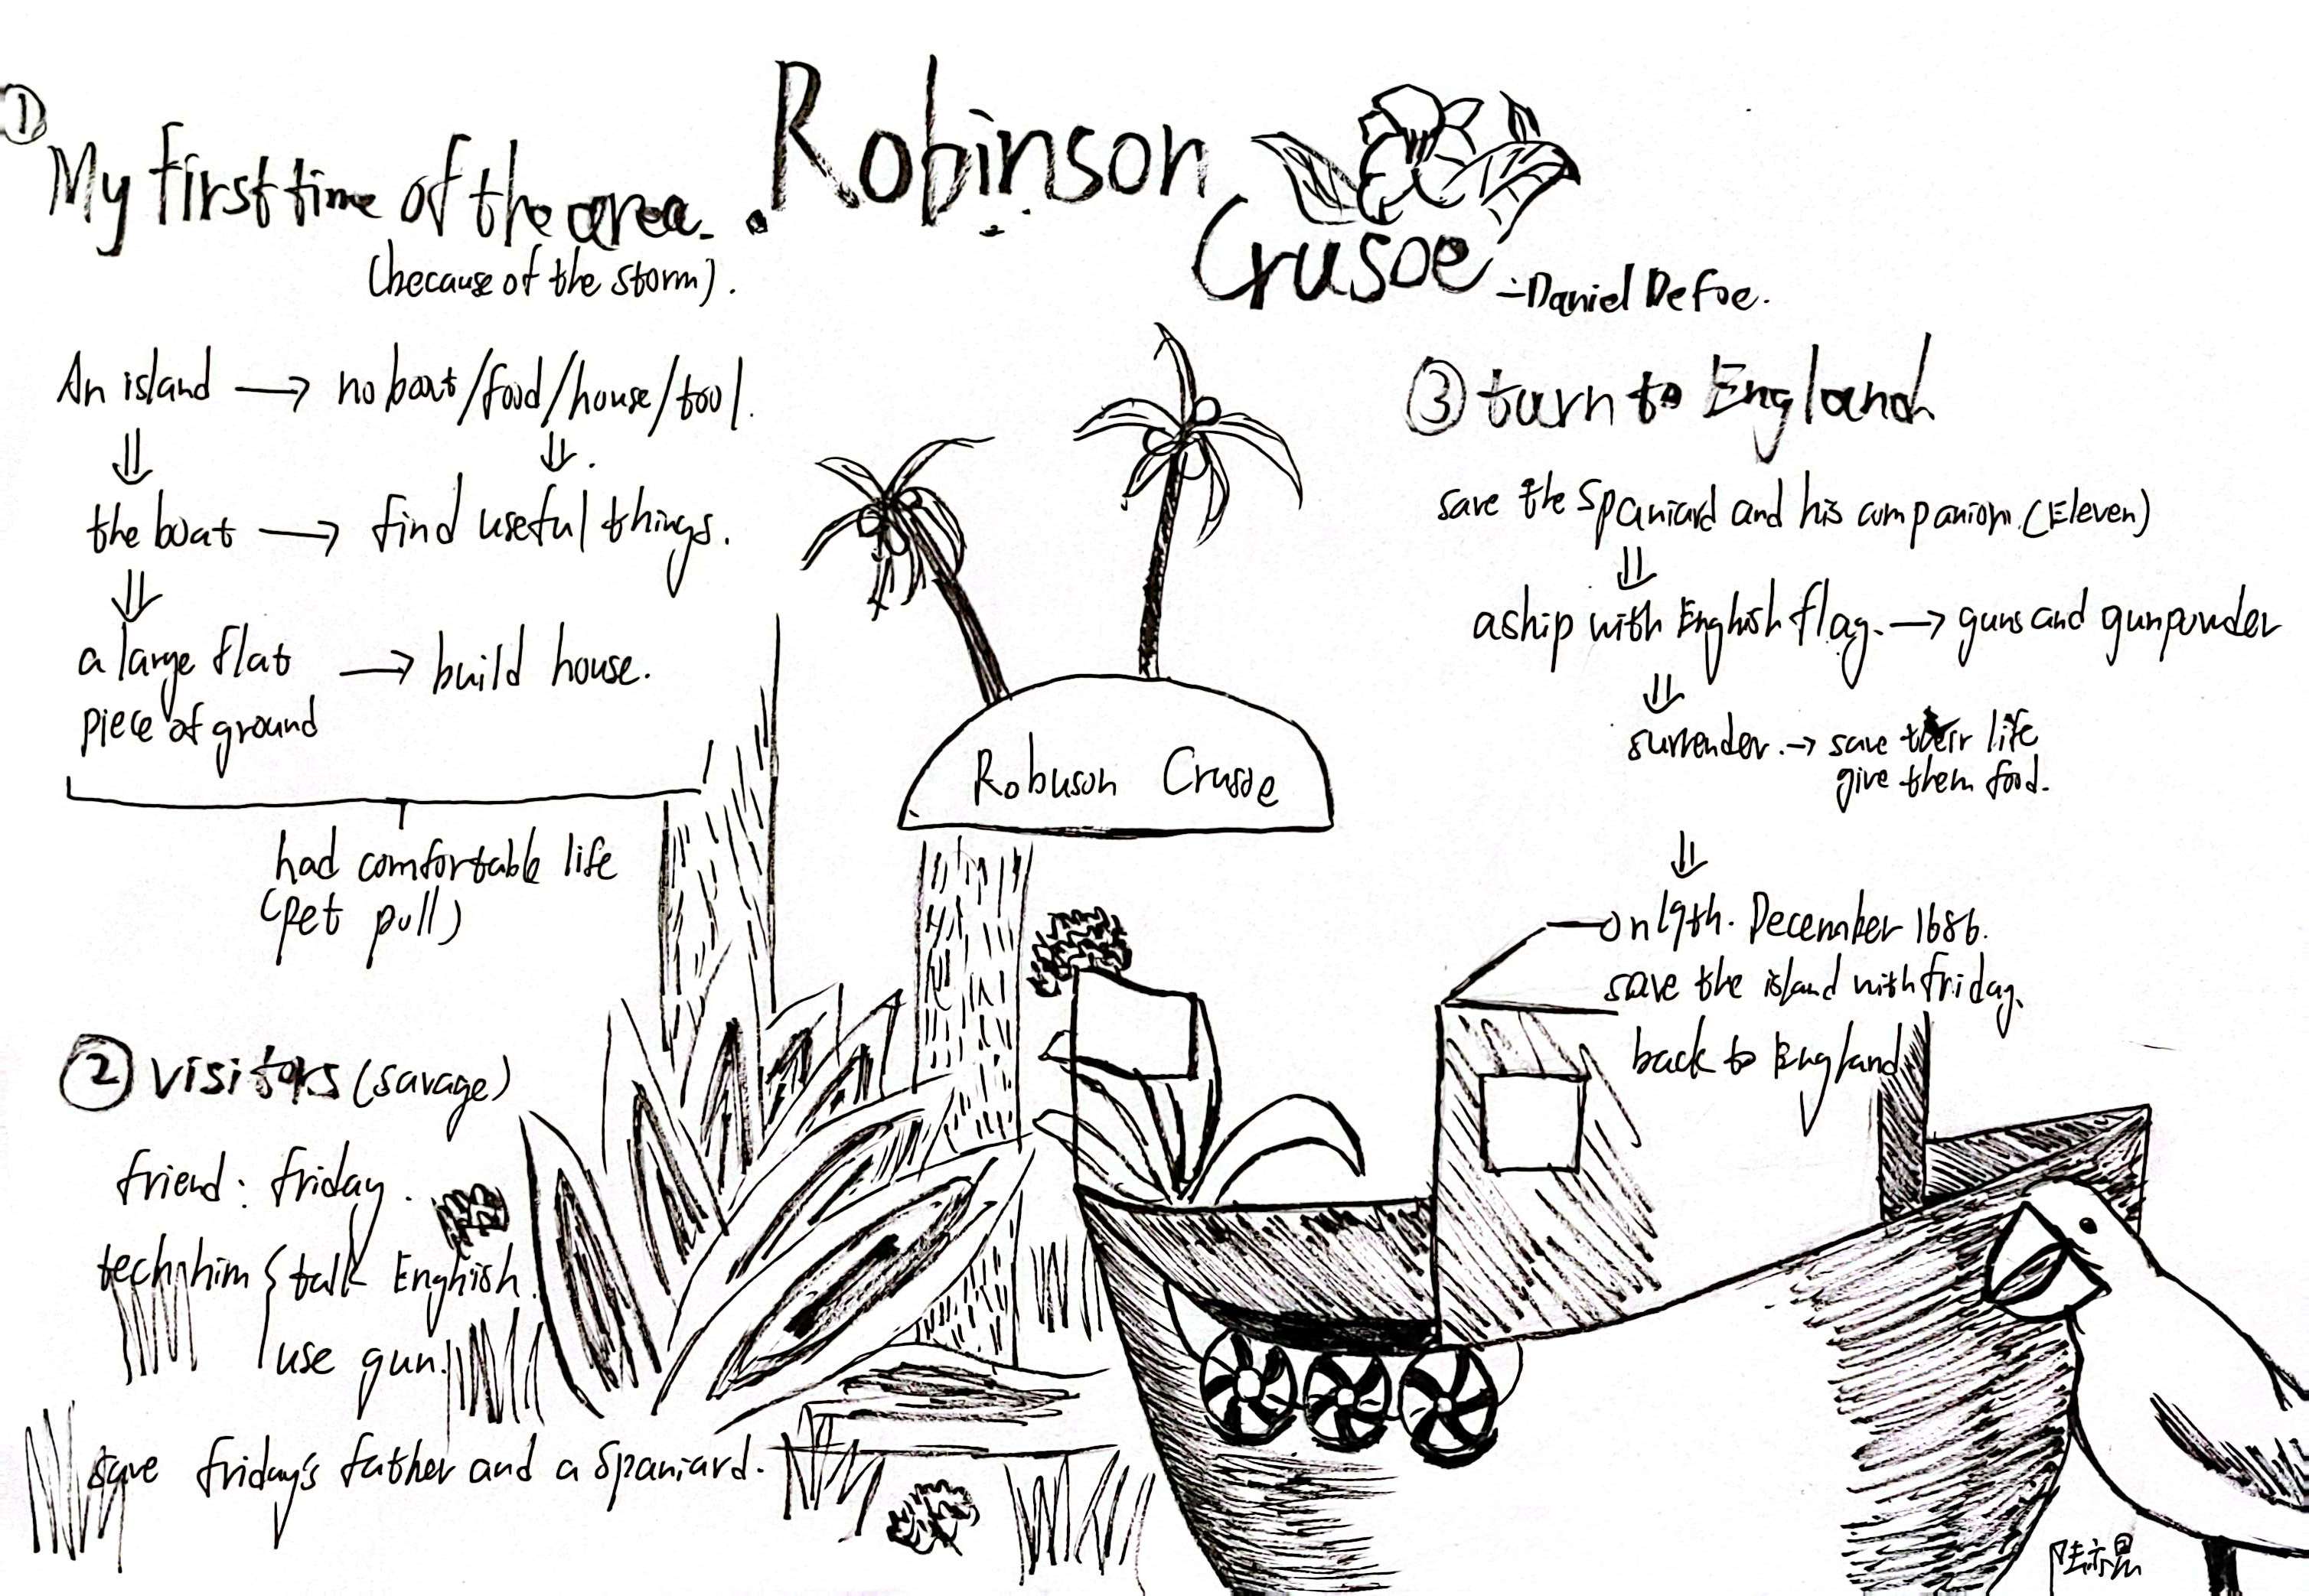 Robinson
Crusoe
- Daniel Defoe.
①
My first time of the area.
(because of the storm).
An island → no boat/food/house/tool.
⇓ ⇓.
the boat → find useful things.
⇓
a large flat → build house.
piece of ground
had comfortable life
(pet pull)
② visitors (savage)
friend: friday.
tech him { talk Enghish.
use gun.
save friday's father and a Spaniard.
Robuson Crusoe
③ turn to England
save the Spaniard and his companion. (Eleven)
⇓
a ship with Enghish flag. → guns and gunpowder
⇓
surrender. → save their life
give them food.
⇓
on 19th. December 1686.
save the island with friday.
back to England